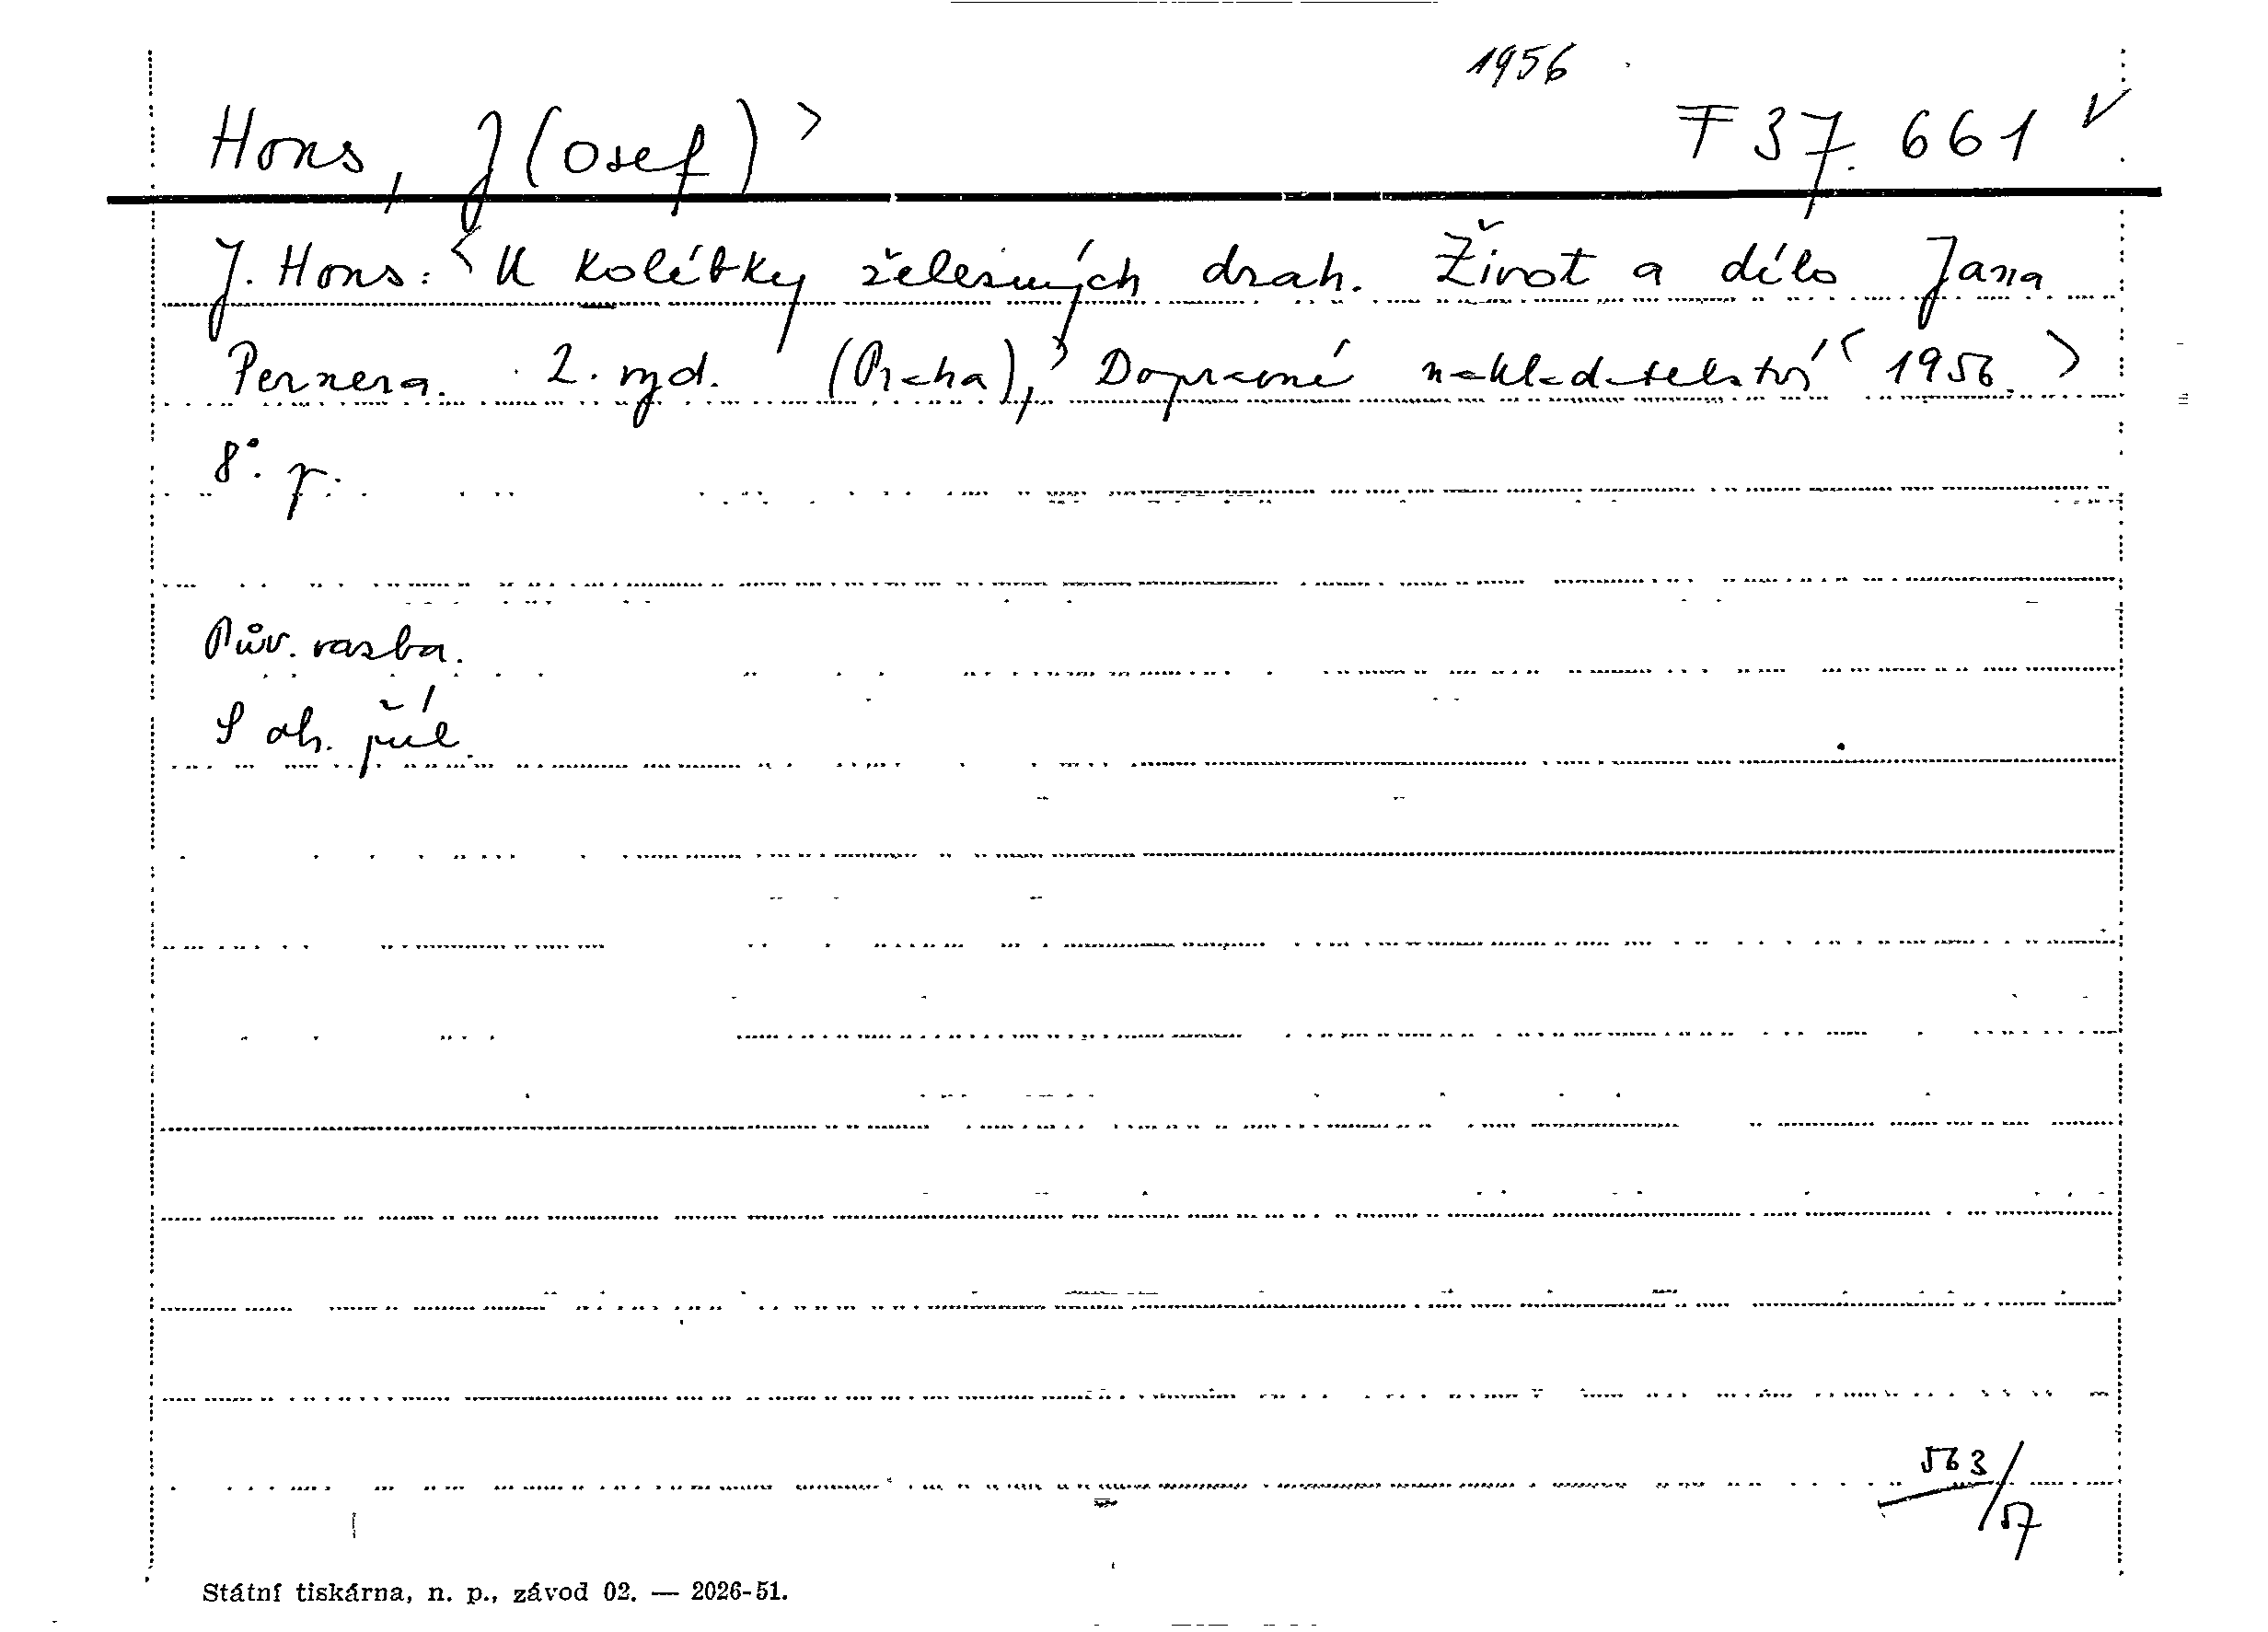 1956
Hons, J(osef) > F 37.661 V
J. Hons: < U kolébky železných drah. Život a dílo Jana
Pernera. 2. vyd. (Praha), > Dopravné nakladatelství < 1956. >
8°. p.
Pův. vazba.
S ob. příl.
563/57
Státní tiskárna, n. p., závod 02. — 2026-51.